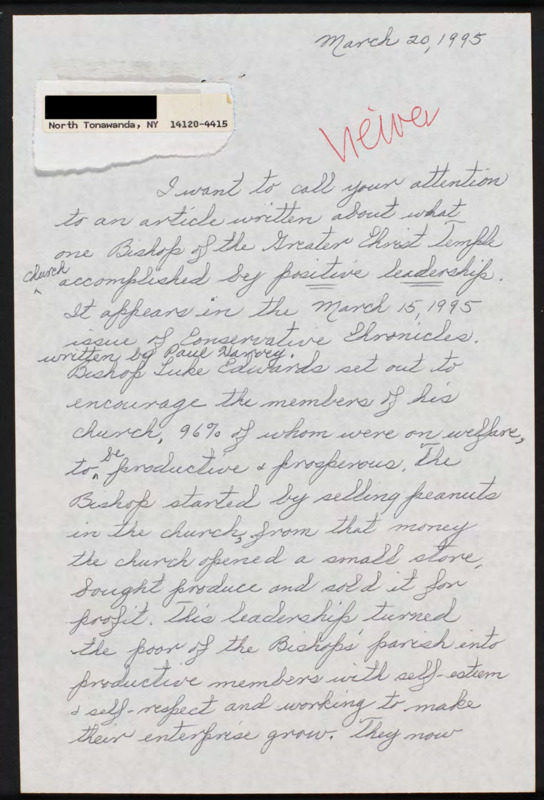 March 20, 1995
North Tonawanda, NY 14120-4415
I want to call your attention
to an article written about what
one Bishop of the Greater Christ Temple
church accomplished by positive leadership.
It appears in the March 15, 1995
issue of Conservative Chronicles.
written by Paul Harvey.
Bishop Luke Edwards set out to
encourage the members of his
church, 96% of whom were on welfare,
to be productive & prosperous. The
Bishop started by selling peanuts
in the church, from that money
the church opened a small store,
bought produce and sold it for
profit. This leadership turned
the poor of the Bishops' parish into
productive members with self-esteem
& self-respect and working to make
their enterprise grow. They now